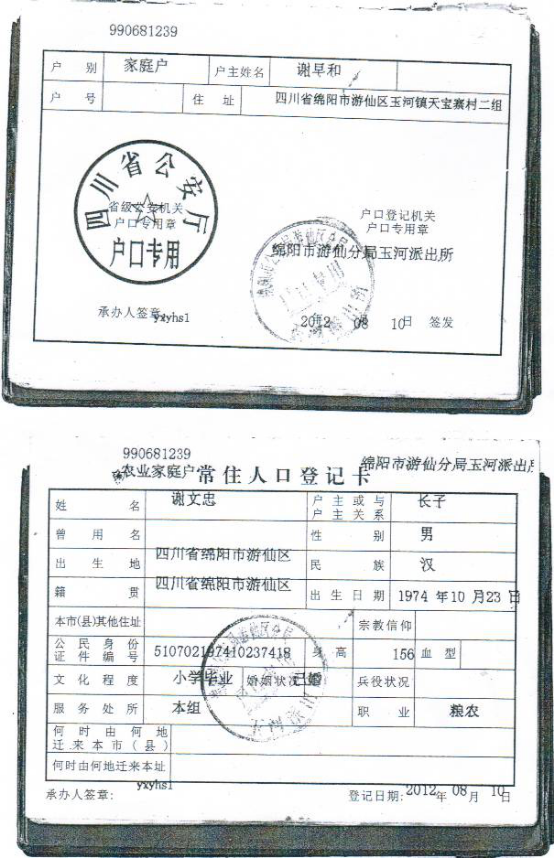 990681239
户 别 家庭户 户主姓名 谢早和
户 号 住 址 四川省绵阳市游仙区玉河镇天宝寨村二组
四川省公安厅
省级公安机关
户口专用章
户口专用
户口登记机关
户口专用章
绵阳市游仙分局玉河派出所
承办人签章 yxyhs1
2012年 08 10日 签发
990681239
农业家庭户 常住人口登记卡 绵阳市游仙分局玉河派出所
姓 名 谢文忠 户主或与户主关系 长子
曾用名 性 别 男
出生地 四川省绵阳市游仙区 民 族 汉
籍 贯 四川省绵阳市游仙区 出生日期 1974 年10 月23 日
本市(县)其他住址 宗教信仰
公民身份证件编号 510702197410237418 身 高 156 血型
文化程度 小学毕业 婚姻状况 已婚 兵役状况
服务处所 本组 职 业 粮农
何时由何地迁来本市(县)
何时由何地迁来本址
承办人签章: yxyhs1 登记日期: 2012年 08月 10日